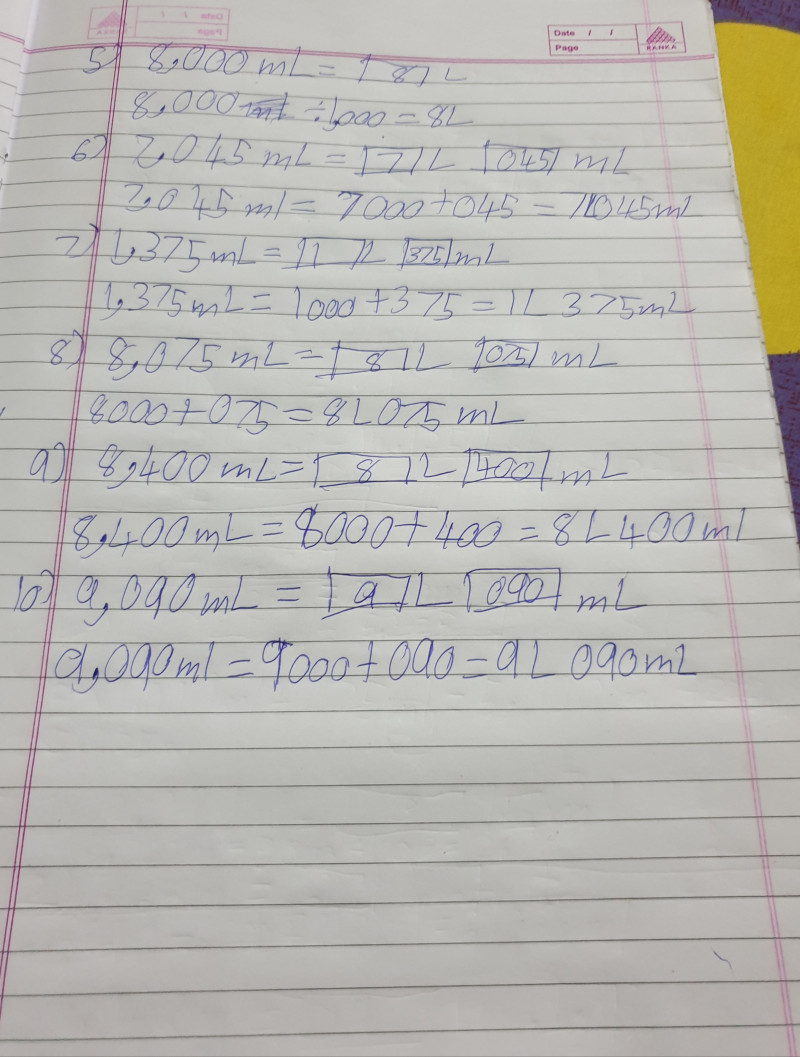 Date / /
Page
RANKA
5) 8,000 mL = 8 L
8,000 ÷ 1,000 = 8L
6) 7,045 mL = 7 L 045 mL
7,045 ml = 7000 + 045 = 7L 045 mL
7) 1,375 mL = 1 L 375 mL
1,375 mL = 1000 + 375 = 1L 375 mL
8) 8,075 mL = 8 L 075 mL
8000 + 075 = 8L 075 mL
9) 8,400 mL = 8 L 400 mL
8,400 mL = 8000 + 400 = 8L 400 ml
10) 9,090 mL = 9 L 090 mL
9,090 ml = 9000 + 090 = 9L 090 mL